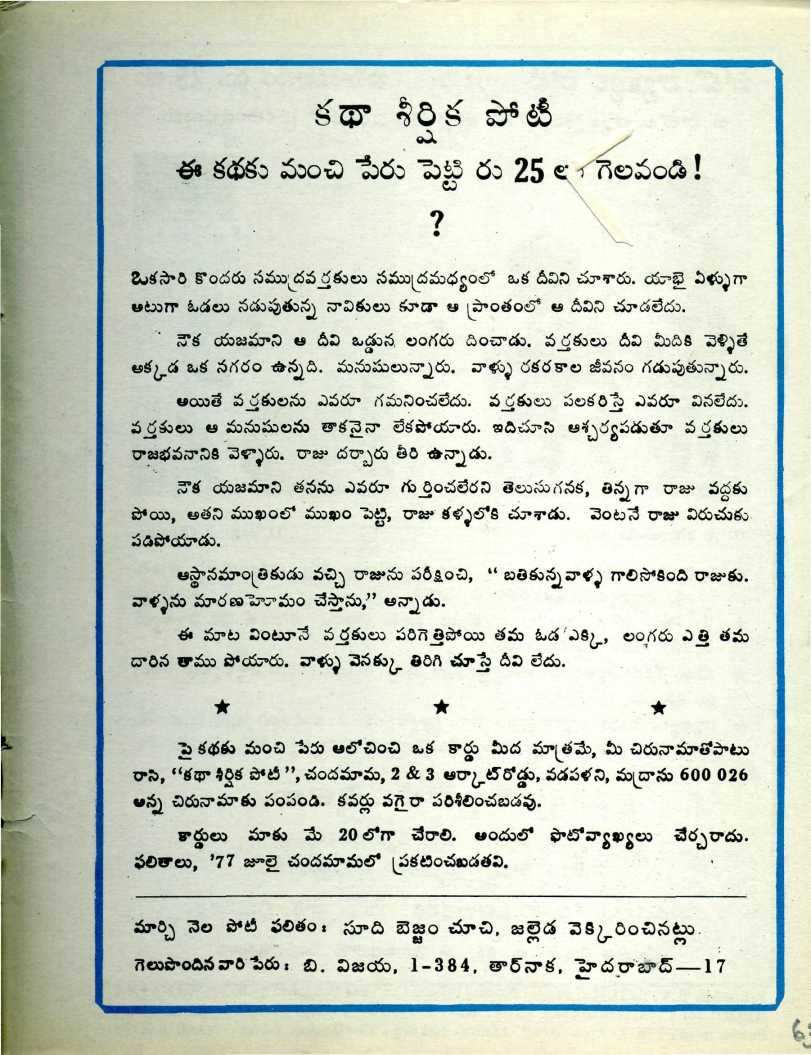 కథా శీర్షిక పోటీ
ఈ కథకు మంచి పేరు పెట్టి రు 25 లు గెలవండి!
?
ఒకసారి కొందరు సముద్రవర్తకులు సముద్రమధ్యంలో ఒక దీవిని చూశారు. యాభై ఏళ్ళుగా
అటుగా ఓడలు నడుపుతున్న నావికులు కూడా ఆ ప్రాంతంలో ఆ దీవిని చూడలేదు.
నౌక యజమాని ఆ దీవి ఒడ్డున లంగరు దించాడు. వర్తకులు దీవి మీదికి వెళ్ళితే
అక్కడ ఒక నగరం ఉన్నది. మనుషులున్నారు. వాళ్ళు రకరకాల జీవనం గడుపుతున్నారు.
అయితే వర్తకులను ఎవరూ గమనించలేదు. వర్తకులు పలకరిస్తే ఎవరూ వినలేదు.
వర్తకులు ఆ మనుషులను తాకనైనా లేకపోయారు. ఇదిచూసి ఆశ్చర్యపడుతూ వర్తకులు
రాజభవనానికి వెళ్ళారు. రాజు దర్బారు తీరి ఉన్నాడు.
నౌక యజమాని తనను ఎవరూ గుర్తించలేరని తెలుసుగనక, తిన్నగా రాజు వద్దకు
పోయి, అతని ముఖంలో ముఖం పెట్టి, రాజు కళ్ళలోకి చూశాడు. వెంటనే రాజు విరుచుకు
పడిపోయాడు.
ఆస్థానమాంత్రికుడు వచ్చి రాజును పరీక్షించి, “ బతికున్నవాళ్ళ గాలిసోకింది రాజుకు.
వాళ్ళను మారణహోమం చేస్తాను,” అన్నాడు.
ఈ మాట వింటూనే వర్తకులు పరిగెత్తిపోయి తమ ఓడ ఎక్కి, లంగరు ఎత్తి తమ
దారిన తాము పోయారు. వాళ్ళు వెనక్కు తిరిగి చూస్తే దీవి లేదు.
★ ★ ★
పై కథకు మంచి పేరు ఆలోచించి ఒక కార్డు మీద మాత్రమే, మీ చిరునామాతోపాటు
రాసి, “కథా శీర్షిక పోటీ”, చందమామ, 2 & 3 ఆర్కాట్ రోడ్డు, వడపళని, మద్రాసు 600 026
అన్న చిరునామాకు పంపండి. కవర్లు వగైరా పరిశీలించబడవు.
కార్డులు మాకు మే 20 లోగా చేరాలి. అందులో ఫొటోవ్యాఖ్యలు చేర్చరాదు.
ఫలితాలు, '77 జూలై చందమామలో ప్రకటించబడతవి.
మార్చి నెల పోటీ ఫలితం: సూది బెజ్జం చూచి, జల్లెడ వెక్కిరించినట్లు.
గెలుపొందిన వారి పేరు: బి. విజయ, 1-384, తార్నాక, హైదరాబాద్—17